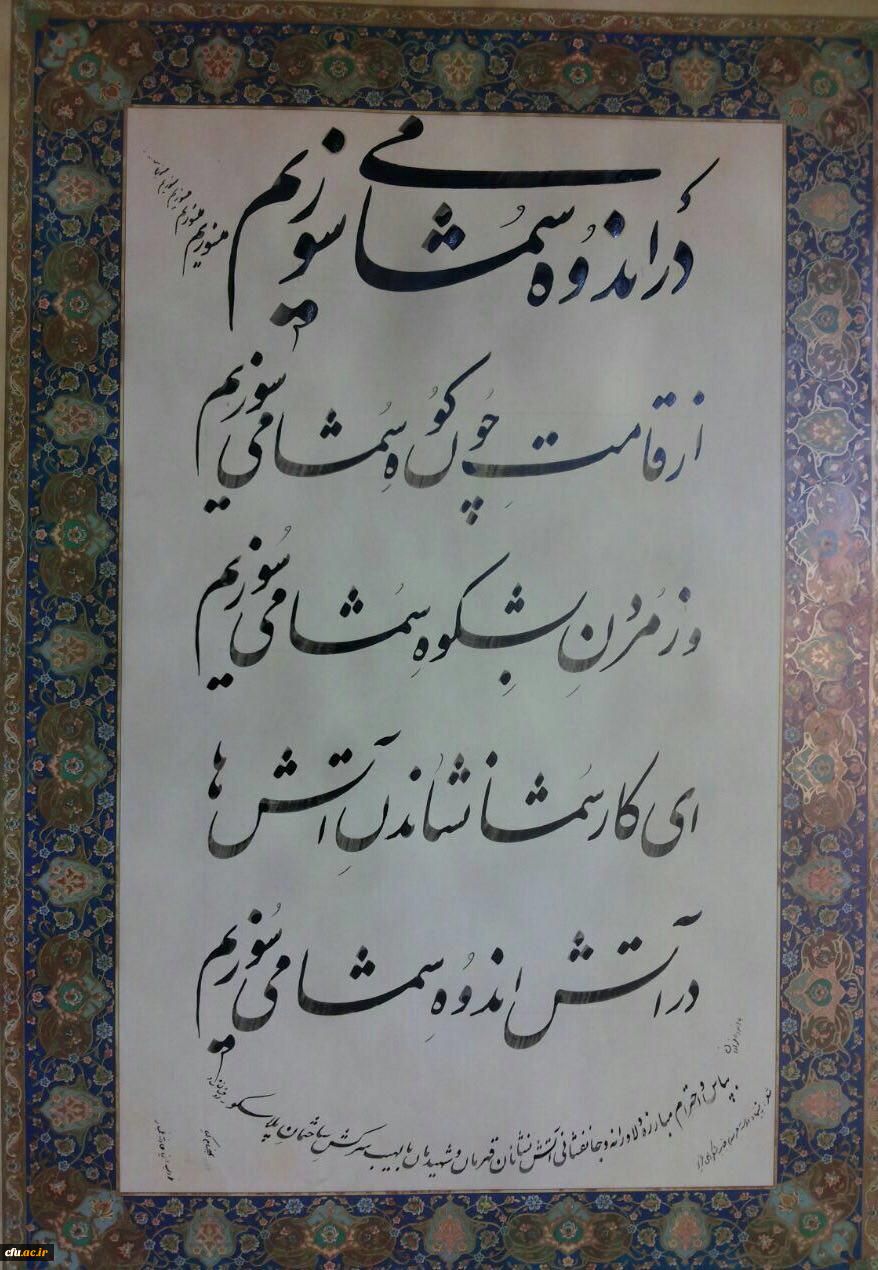 در اندوه شما می سوزیم
میسوزیم میسوزیم
از قامتِ چُون کوُهِ شُما می سوزیم
وز مُردنِ بِشکوهِ شُما می سُوزیم
ای کار شُما نشاندنِ آتش ها
در آتش اندوُهِ شما می سُوزیم
بپاس و احترام مبارزه دلاورانه و جانفشانی آتش نشانان قهرمان و شهیدمان با لهیب سرکش ساختمان پلاسکو
cfu.ac.ir